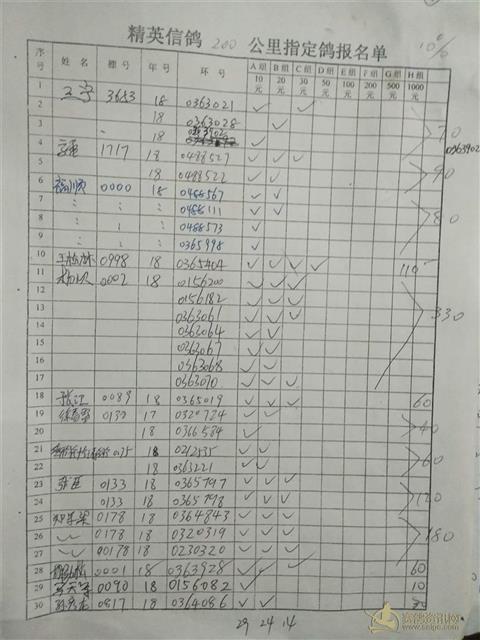 精英信鸽 200 公里指定鸽报名单
10%
序号 姓名 棚号 年号 环号 A组10元 B组20元 C组30元 D组50元 E组100元 F组200元 G组500元 H组1000元
1 王宁 3683 18 0363021 ✓ ✓
2 18 0363028 ✓ ✓
3 18 ✓ 70
0363902
4 1717 18 0488527 ✓ ✓ ✓
5 18 0488522 ✓ ✓ 90
6 0000 18 0488567 ✓ ✓
7 : : 0488111 ✓ ✓
8 : : 0488573 ✓ 80
9 : : 0365998 ✓
10 0998 18 0365404 ✓ ✓ ✓ ✓ 110
11 0002 18 0156200 ✓ ✓ ✓
12 0156182 ✓ ✓ ✓
13 0363061 ✓ ✓ ✓
14 0363064 ✓ ✓ 330
15 0363067 ✓ ✓
16 0363068 ✓ ✓
17 0363070 ✓ ✓ ✓
18 张江 0089 18 0365019 ✓ ✓ ✓ 60
19 0130 17 0320724 ✓ ✓
20 18 0366584 ✓ 40
21 0135 18 0212535 ✓ ✓
22 18 0363221 ✓ ✓ 60
23 0133 18 0365797 ✓ ✓ ✓
24 0133 18 0365798 ✓ ✓ ✓ 120
25 0178 18 0364843 ✓ ✓ ✓
26 0178 18 0320319 ✓ ✓ ✓ 180
27 00178 18 0230320 ✓ ✓ ✓
28 0001 18 0363928 ✓ ✓ ✓ 60
29 0090 18 0156082 ✓ 10
30 0817 18 0364086 ✓ ✓ 30
29 24 14